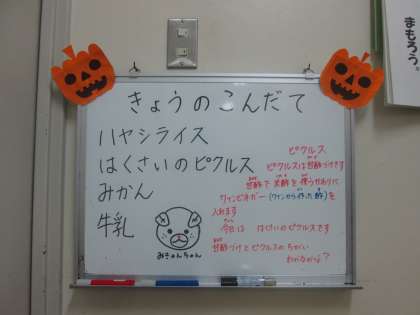 きょうのこんだて
ハヤシライス
はくさいのピクルス
みかん
牛乳
みきゃんちゃん
ピクルス
ピクルスは甘酢づけです
甘酢で米酢を使うかわりに
ワインビネガー(ワインから作った酢)を
入れます
今日は はくさいのピクルスです
甘酢づけとピクルスのちがい
わかるかな?
まもろう。